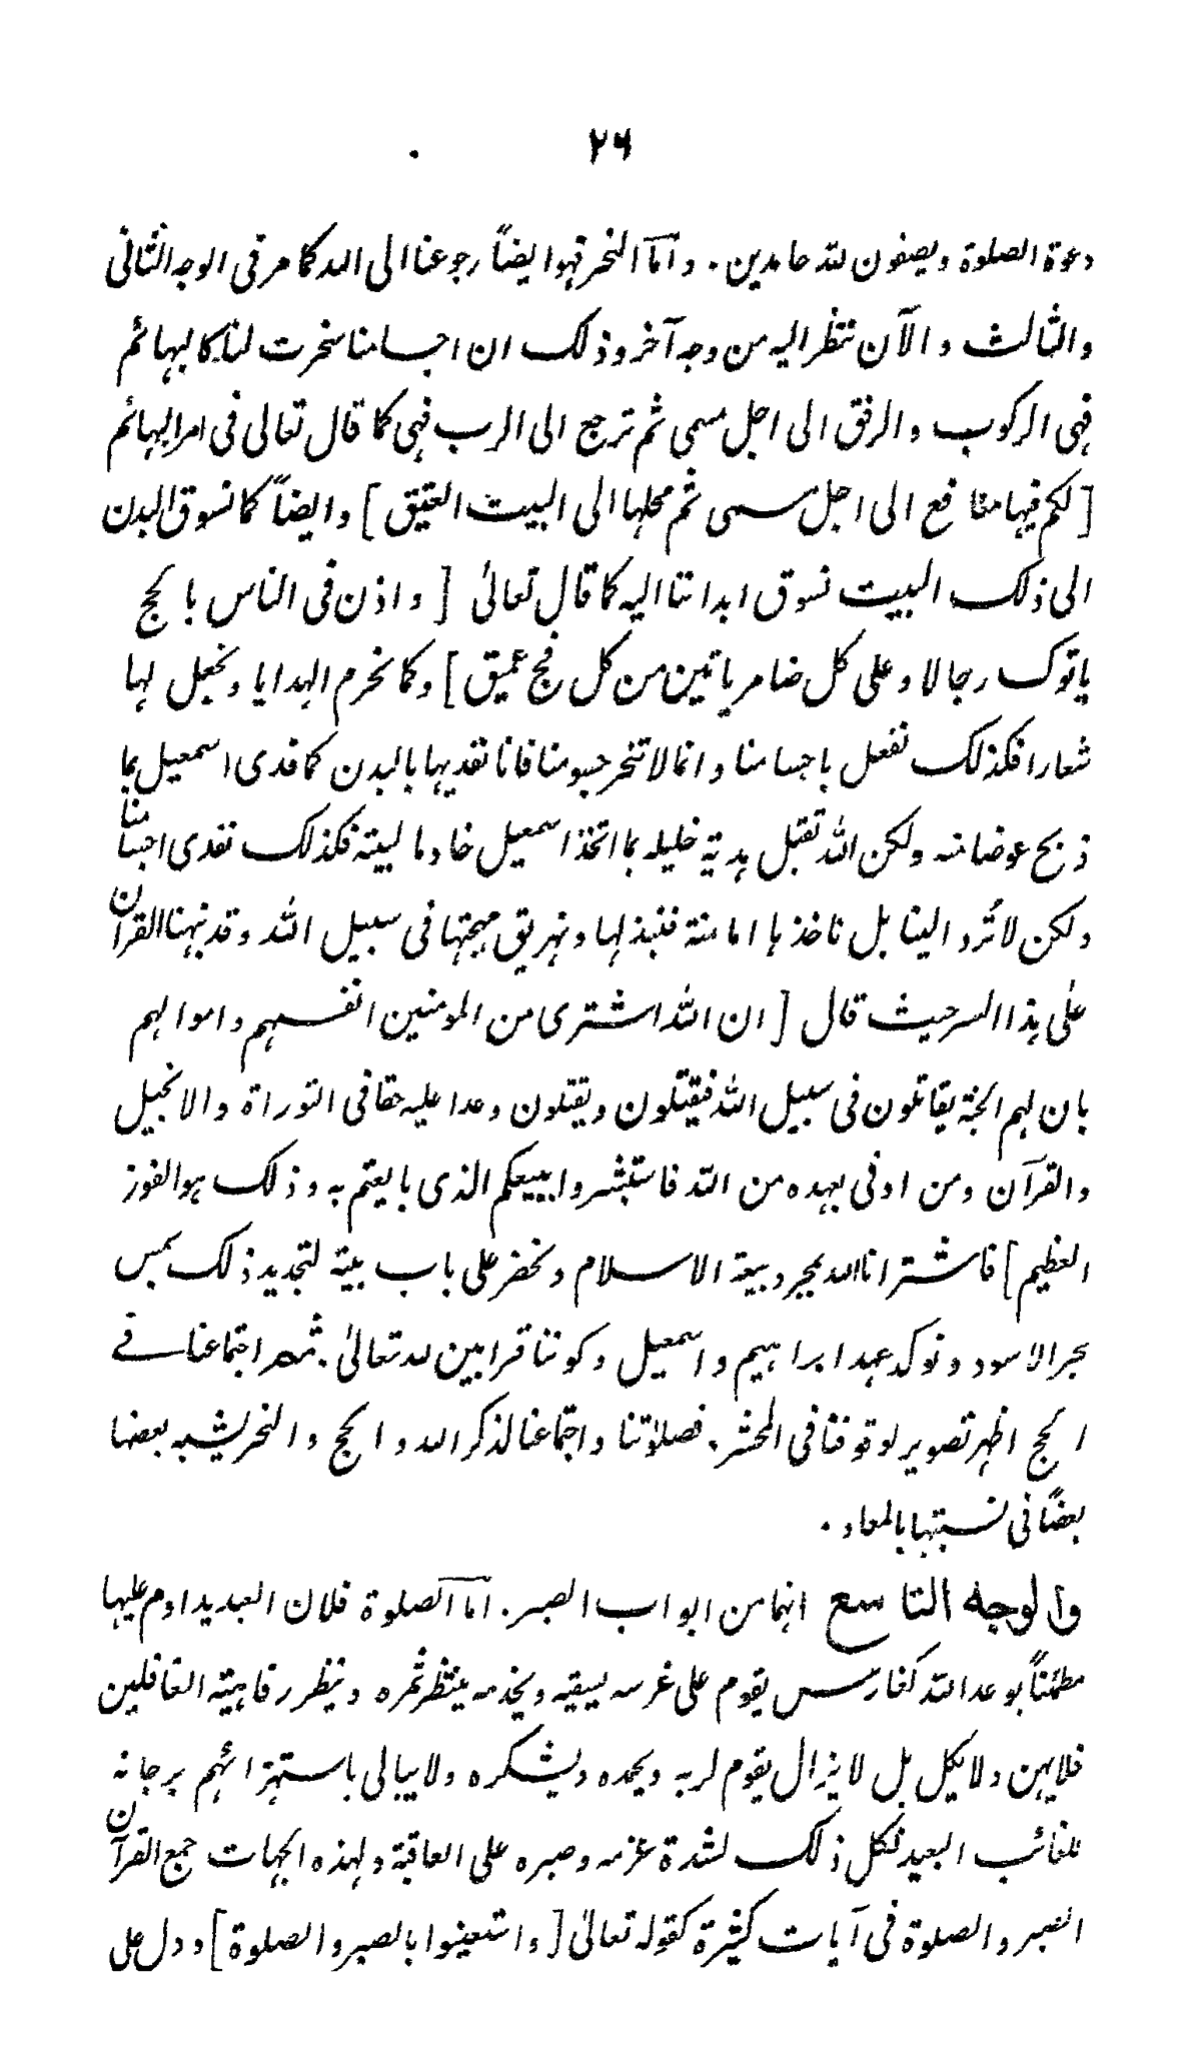 ۲۶
دعوة الصلوة ويصفون لله حامدين. واما النحر فهو ايضاً رجوعنا الى الله كما مر فى الوجه الثانى
والثالث والآن ننظر اليه من وجه آخر وذلك ان اجسامنا سخرت لنا كالبهائم
فهى الركوب والرفق الى اجل مسمى ثم ترجع الى الرب فهى كما قال تعالى فى امر البهائم
[لكم فيها منافع الى اجل مسمى ثم محلها الى البيت العتيق] وايضاً كما نسوق البدن
الى ذلك البيت نسوق ابداننا اليه كما قال تعالىٰ [واذن فى الناس بالحج
ياتوك رجالا وعلى كل ضامر ياتين من كل فج عميق] وكما نحرم الهدايا ونجعل لها
شعارا فكذلك نفعل باجسامنا وانما لا تنحر جسومنا فانا نفديها بالبدن كما فدى اسمعيل بما
ذبح عوضا منه ولكن الله تقبل هدية خليله بما اتخذ اسمعيل خادما لبيته فكذلك نفدى اجسامنا
ولكن لا تُرد الينا بل ناخذها امانة فنبذلها ونهريق مهجتها فى سبيل الله وقد نبهنا القرآن
علٰى هذا السر حيث قال [ان الله اشترى من المومنين انفسهم واموالهم
بان لهم الجنة يقاتلون فى سبيل الله فيقتلون ويقتلون وعدا عليه حقا فى التوراة والانجيل
والقرآن ومن اوفى بعهده من الله فاستبشروا ببيعكم الذى بايعتم به وذلك هو الفوز
العظيم] فاشترانا الله بمجرد بيعة الاسلام ونحضر على باب بيته لتجديد ذلك بمس
حجر الاسود ونوكد عهد ابراهيم واسمعيل وكوننا قرابين لله تعالىٰ. ثم اجتماعنا فے
الحج اظهر تصوير لوقوفنا فى المحشر. فصلاتنا واجتماعنا لذكر الله والحج والنحر يشبه بعضا
بعضاً فى نسبتها بالمعاد.
والوجه التاسع انهما من ابواب الصبر. اما الصلوة فلان العبد يداوم عليها
مطمئناً بوعد الله كغارس يقوم على غرسه يسقيه ويخدمه ينتظر ثمره وينظر رفاهية الغافلين
فلا يهن ولا يكل بل لا يزال يقوم لربه ويحمده ويشكره ولا يبالى باستهزائهم برجائه
للغائب البعيد فكل ذلك لشدة عزمه وصبره على العاقبة ولهذه الجهات جمع القرآن
الصبر والصلوة فى آيات كثيرة كقوله تعالىٰ [واستعينوا بالصبر والصلوة] ودل على